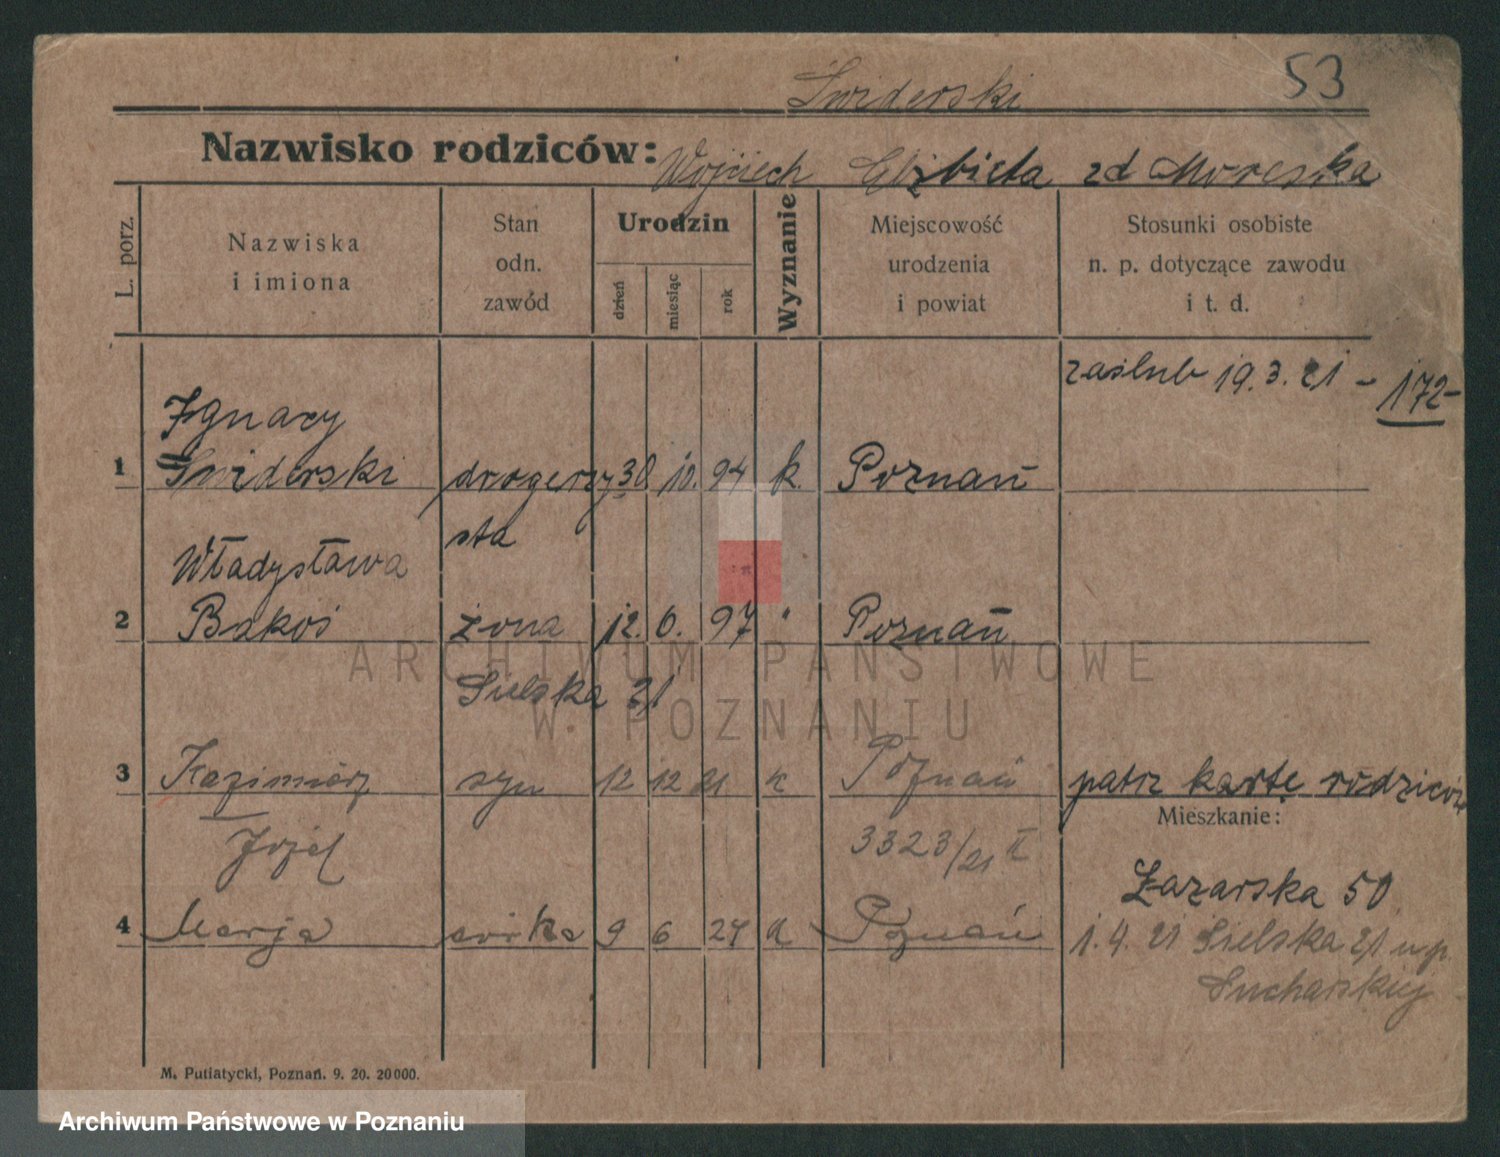 53
Świderski
Nazwisko rodziców: Wojciech Elżbieta zd Moreska
L. porz.
Nazwiska i imiona
Stan odn. zawód
Urodzin
dzień
miesiąc
rok
Wyznanie
Miejscowość urodzenia i powiat
Stosunki osobiste n. p. dotyczące zawodu i t. d.
zaślub 19.3.21 - 172-
Ignacy
1 Świderski drogerzy 30 10. 94 k. Poznań
sta
Władysława
2 Bakoś żona 12. 6. 97 " Poznań
ARCHIWUM PAŃSTWOWE
W POZNANIU
Sielska 21
3 Kazimierz syn 12 12 21 k Poznań patrz kartę rodziców
Mieszkanie:
Józef 3323/21 II
Łazarska 50
4 Marja córka 9 6 24 Poznań
1.4.21 Sielska 21 u p.
Sucharskiej
M. Putiatycki, Poznań. 9. 20. 20000.
Archiwum Państwowe w Poznaniu